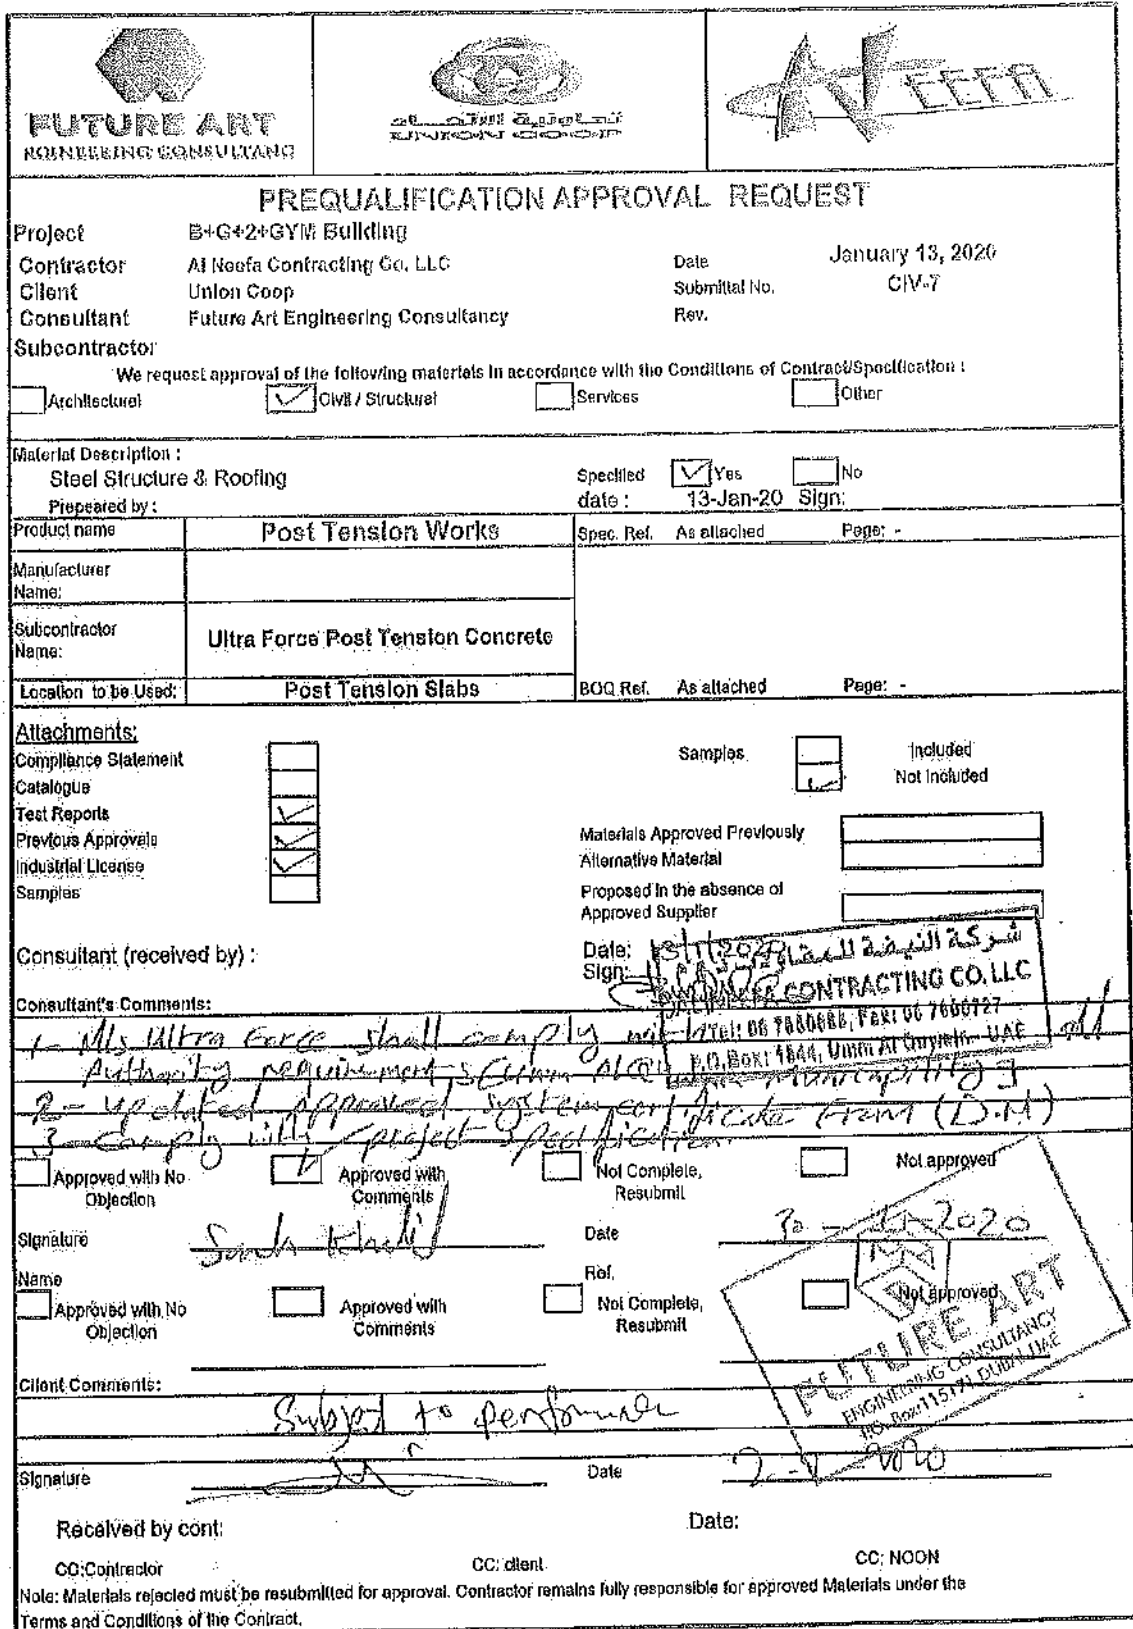 FUTURE ART
NGINEERING CONSULTANC
تعاونية الاتحاد
UNION COOP
NEEFA
PREQUALIFICATION APPROVAL REQUEST
Project B+G+2+GYM Building
Contractor Al Neefa Contracting Co. LLC Date January 13, 2020
Client Union Coop Submittal No. CIV-7
Consultant Future Art Engineering Consultancy Rev.
Subcontractor
We request approval of the following materials in accordance with the Conditions of Contract/Specification :
Architectural Civil / Structural Services Other
Material Description :
Steel Structure & Roofing Specified Yes No
Prepeared by : date : 13-Jan-20 Sign:
Product name Post Tension Works Spec. Ref. As attached Page: -
Manufacturer
Name:
Subcontractor
Name: Ultra Force Post Tension Concrete
Location to be Used: Post Tension Slabs BOQ Ref. As attached Page: -
Attachments:
Compliance Statement Samples Included
Catalogue Not Included
Test Reports
Previous Approvals Materials Approved Previously
Industrial License Alternative Material
Samples Proposed in the absence of
Approved Supplier
Consultant (received by) : Date: 13/1/2020
Sign:
شركة النيفة للمقاولات
CONTRACTING CO. LLC
P.O.Box: 4844, Umm Al Quwein - UAE
Consultant's Comments:
1- M/s Ultra Force shall comply with all
Authority requirements (Umm Al Quwain Municipility)
2- updated approved system certificate from (D.M)
3- comply with project specification
Approved with No Objection Approved with Comments Not Complete, Resubmit Not approved
Signature Date 30 - 2020
Name Ref.
Approved with No Objection Approved with Comments Not Complete, Resubmit Not approved
FUTURE ART
ENGINEERING CONSULTANCY
P.O. Box: 115171 DUBAI, UAE
Client Comments:
Subject to performance
Signature Date 2020
Received by cont: Date:
CC:Contractor CC: client CC: NOON
Note: Materials rejected must be resubmitted for approval. Contractor remains fully responsible for approved Materials under the
Terms and Conditions of the Contract.